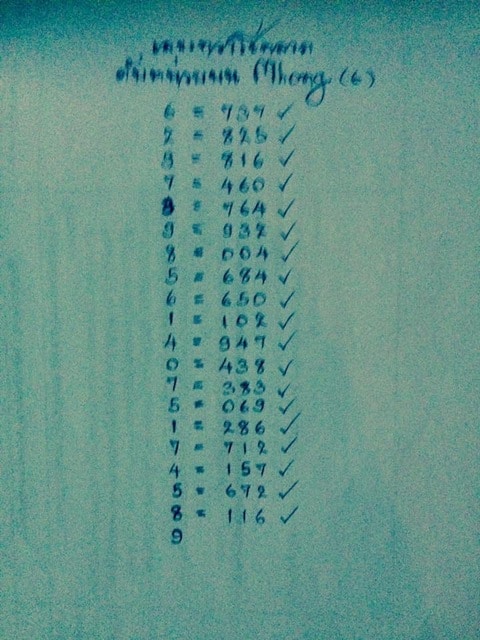 Mhong (6)
6 = 737 ✓
2 = 825 ✓
8 = 816 ✓
7 = 460 ✓
9 = 764 ✓
9 = 932 ✓
8 = 004 ✓
5 = 684 ✓
6 = 650 ✓
1 = 102 ✓
4 = 947 ✓
0 = 438 ✓
7 = 383 ✓
5 = 069 ✓
1 = 286 ✓
7 = 712 ✓
4 = 157 ✓
5 = 672 ✓
8 = 116 ✓
9